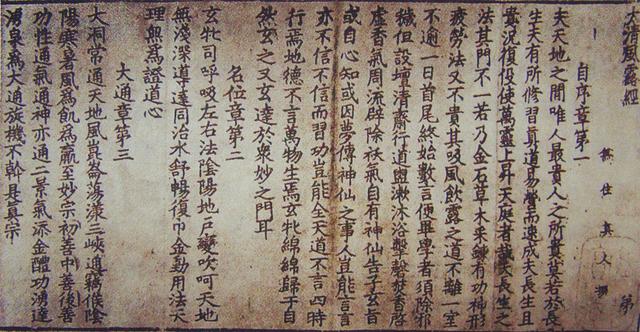 太清風露經
無住真人撰
自序章第一
夫天地之間唯人最貴人之所貴莫若於長
生夫有所修習真道易營而速成夫長生且
貴況復役使萬靈上昇天庭者哉夫長生之
法其門不一若乃金石草木采鍊有功神形
疲勞法又不貴其吸風飲露之道不離一室
不逾一日首尾終始數言便畢學者須除邪
穢但設壇清齋行道盥漱沐浴擊磬焚香啓
虛香氣周流辟除祅氣自有神仙告子玄旨
或自心知或因夢傳神仙之事人豈能言言
亦不信不信而習功豈能全天道不言四時
行焉地德不言萬物生焉玄牝綿綿歸于自
然玄之又玄達於衆妙之門耳
名位章第二
玄牝司呼吸左右法陰陽地戶
吹呵天地
無淺深道
達同治水舒暢復巾金動用法天
理無為證道心
大通章第三
大洞常通天地風崑崙蕩漾三峽通竊候陰
陽寒暑風為飢為羸至妙宗初善中善後善
功性通氣通神亦通二景氣添金醴功湧達
湧泉為大通旋機不幹是真宗
第